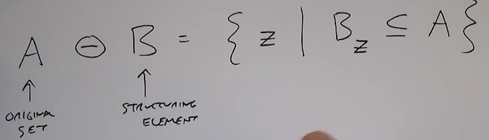 A ⊖ B = { z | B_z ⊆ A }
ORIGINAL SET
STRUCTURING ELEMENT